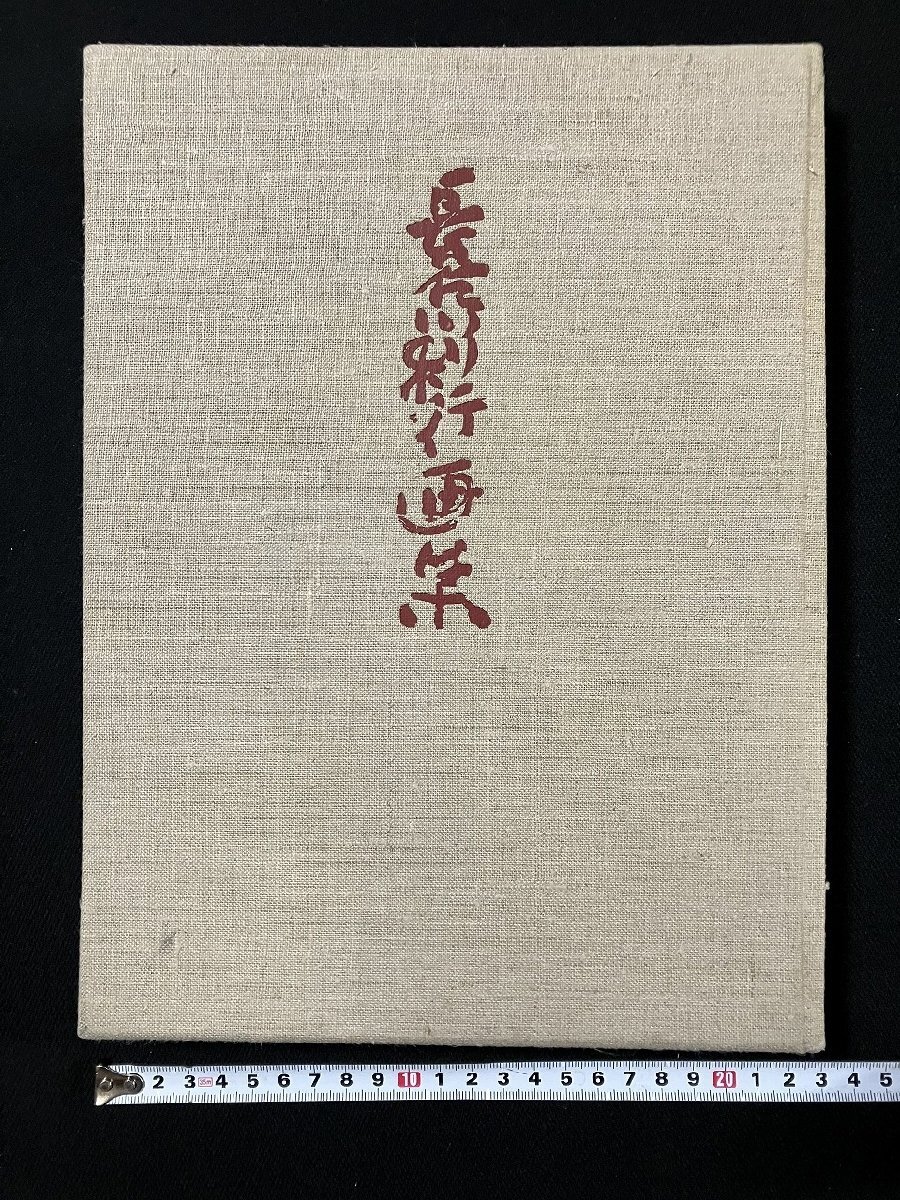 長谷川利行画集
2 3 35m 4 5 6 7 8 9 10 1 2 3 4 5 6 7 8 9 20 1 2 3 4 5